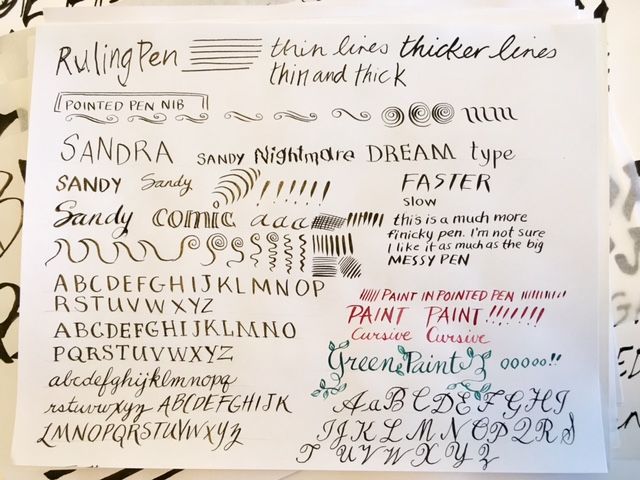 Ruling Pen thin lines thicker lines
thin and thick
POINTED PEN NIB
SANDRA SANDY Nightmare DREAM type
SANDY Sandy
FASTER
slow
Sandy comic aaa
this is a much more
finicky pen. I'm not sure
I like it as much as the big
MESSY PEN
ABCDEFGHIJKLMNOP
RSTUVWXYZ
ABCDEFGHIJKLMNO
PQRSTUVWXYZ
abcdefghijklmnopq
rstuvwxyz ABCDEFGHIJK
LMNOPQRSTUVWXYZ
PAINT IN POINTED PEN
PAINT PAINT!!!!!!!
Cursive Cursive
Green Paint ooooo!!
AaBCDEFGHI
IJKLMNOPQRS
TUVWXYZ